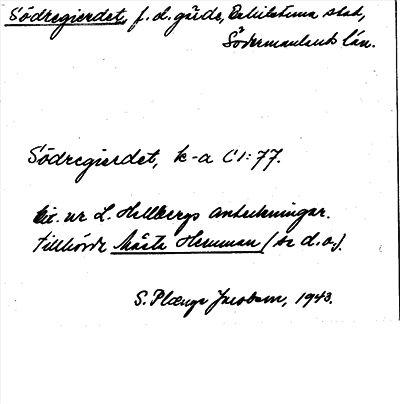 Södregierdet, f. d. gärde, Eskilstuna stad,
Södermanlands län.
Södregierdet, k-a C1:77.
Cit. ur L. Hellbergs anteckningar.
Tillhörde Måste Hemman (se d.o.).
S. Plænge Jacobson, 1943.